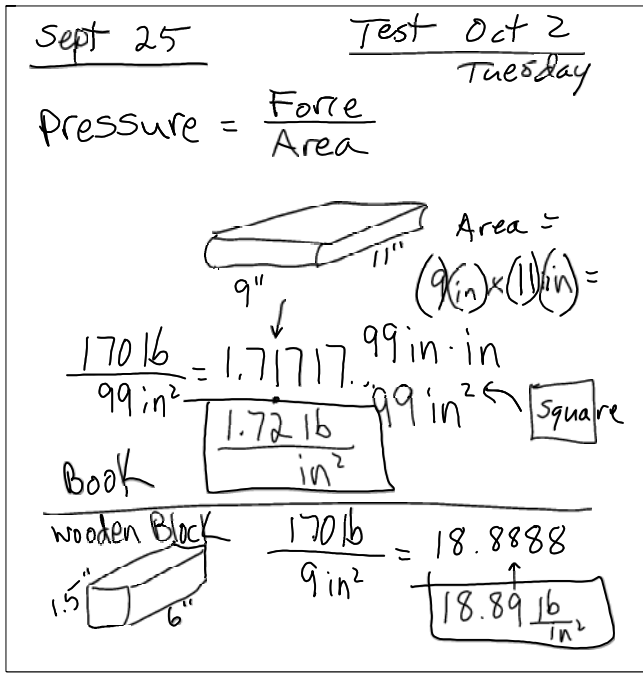 Sept 25
Test Oct 2
Tuesday
Pressure = Force / Area
9"
11"
Area =
(9)(in)×(11)(in) =
99 in · in
99 in²
Square
170 lb / 99 in² = 1.71717...
1.72 lb / in²
Book
wooden Block
1.5"
6"
170 lb / 9 in² = 18.8888
18.89 lb / in²